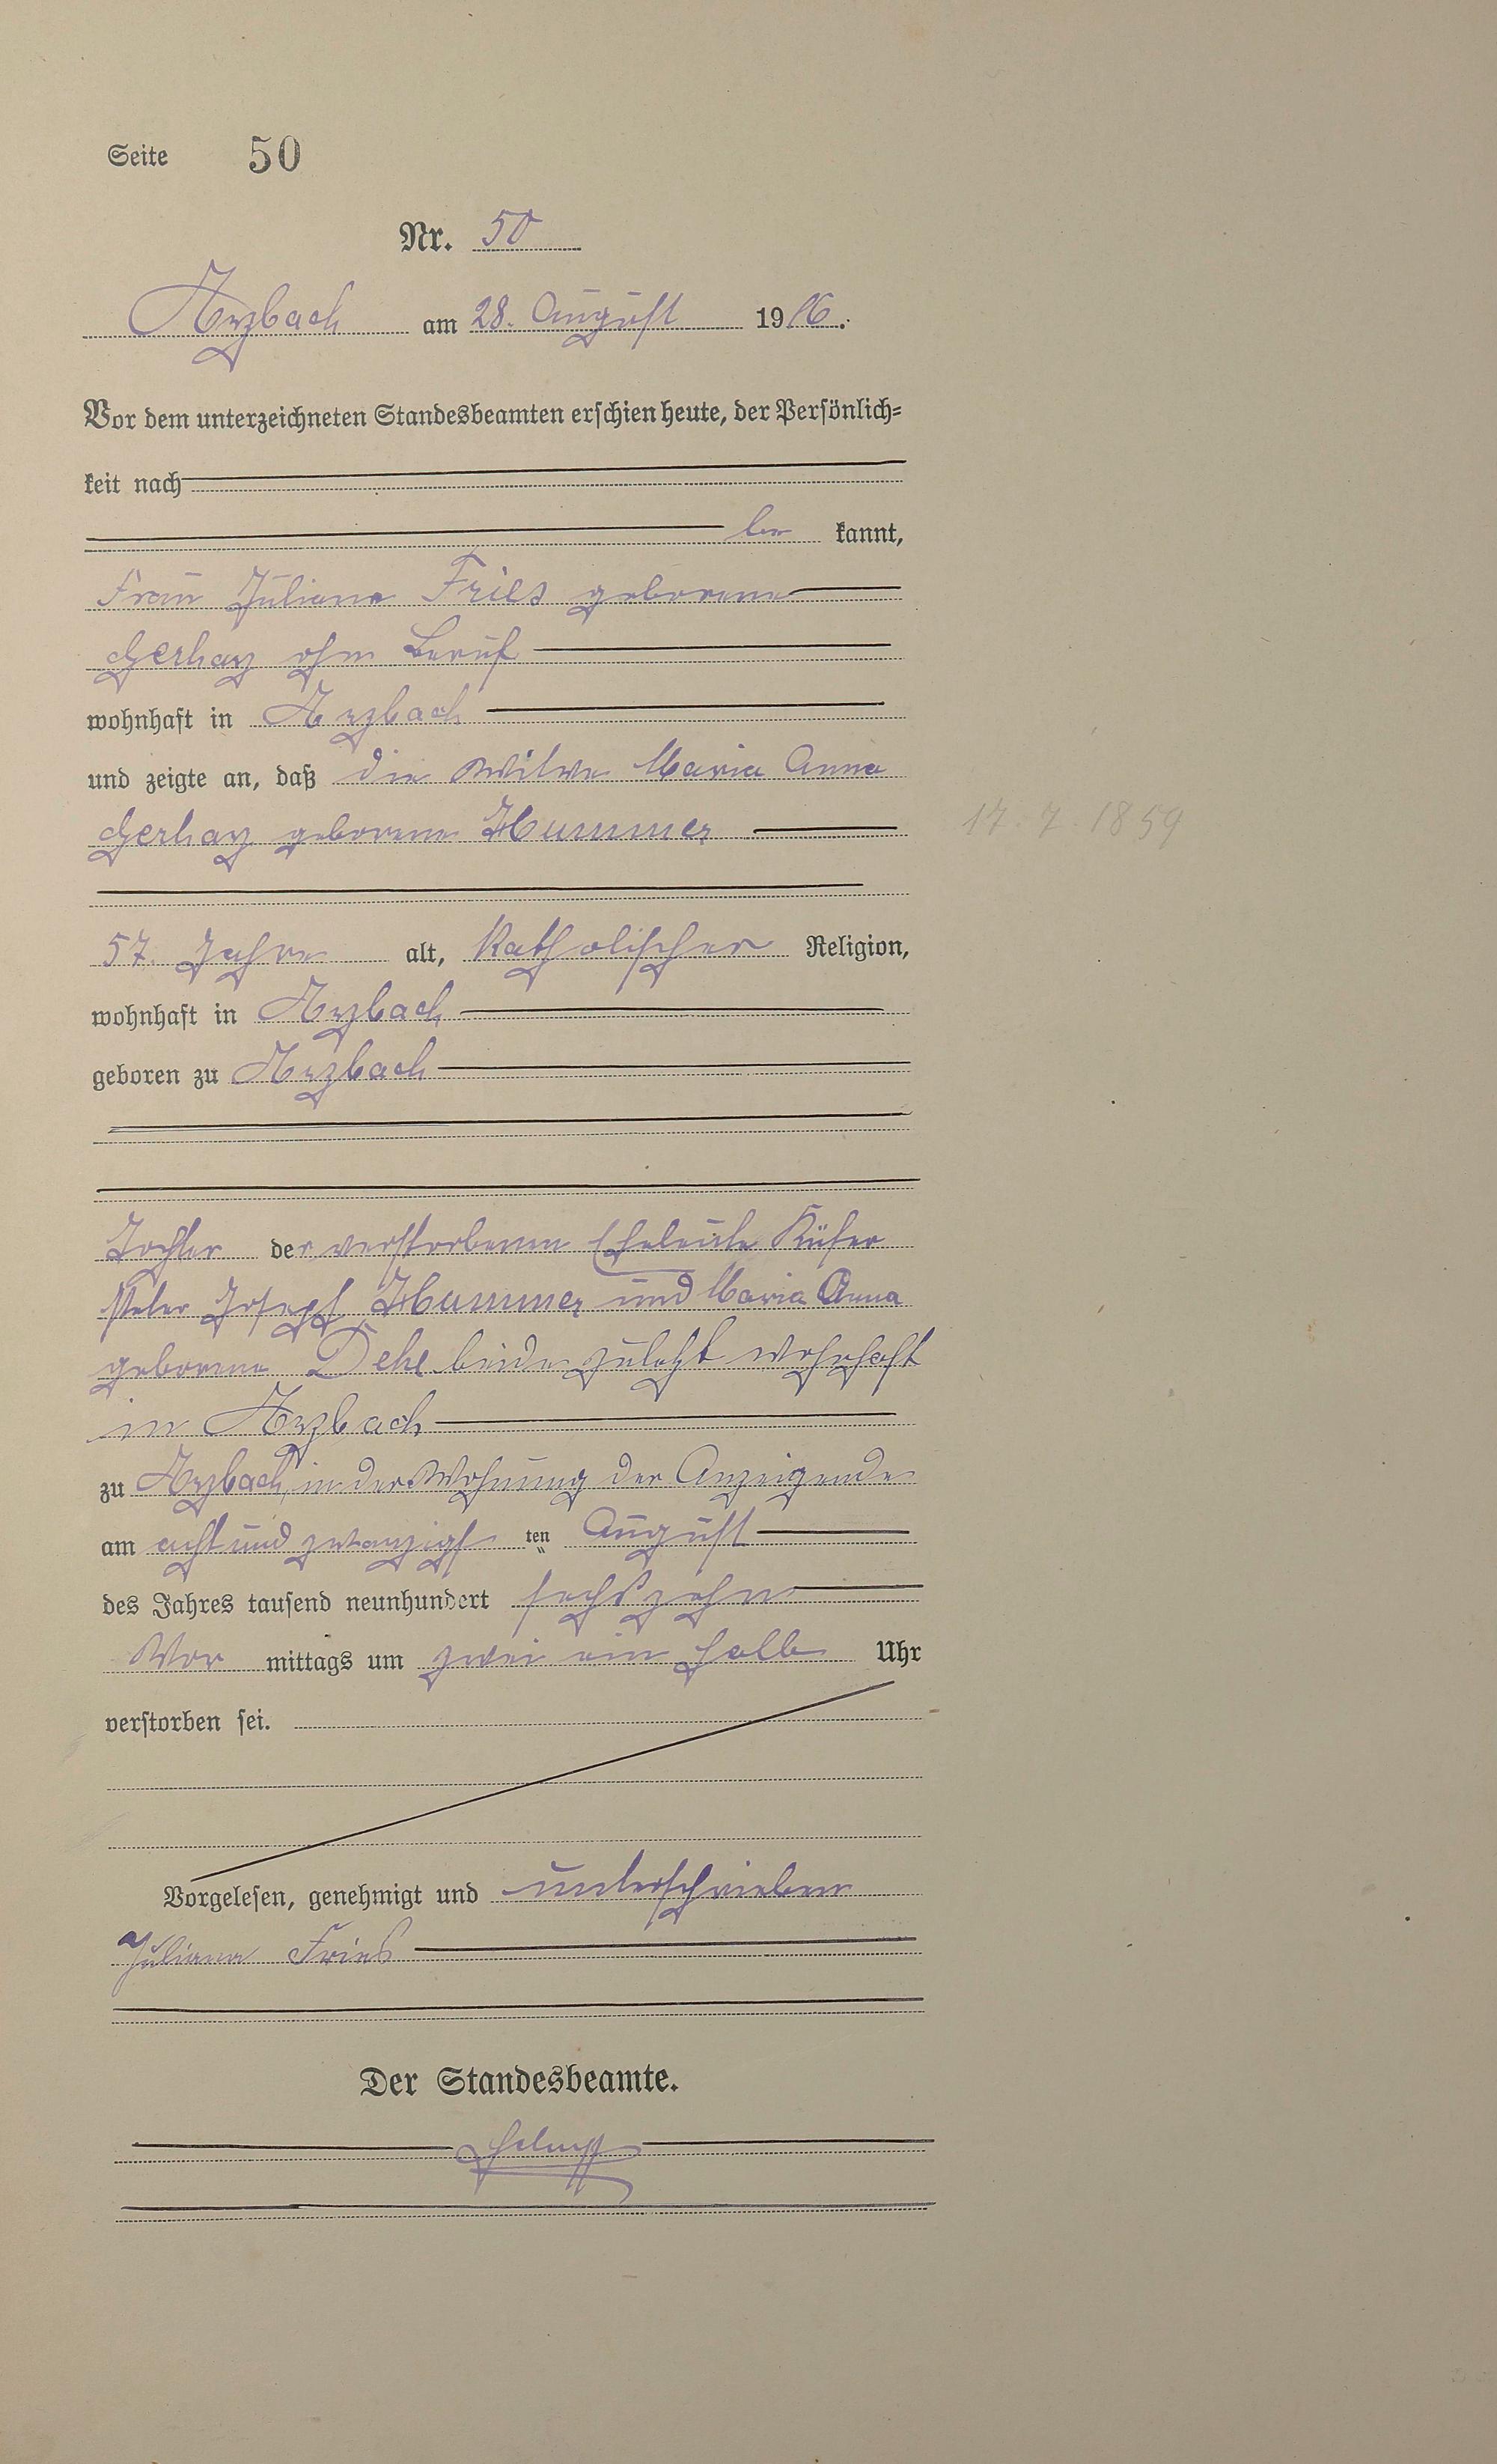 Seite 50
Nr. 50
Arzbach am 28. August 1916.
Vor dem unterzeichneten Standesbeamten erschien heute, der Persönlich-
keit nach
be kannt,
Frau Juliana Fries geborene
Gerharz ohne Beruf
wohnhaft in Arzbach
und zeigte an, daß die Witwe Maria Anna
Gerharz geborene Hummer
17.7.1859
57 Jahre alt, katholischer Religion,
wohnhaft in Arzbach
geboren zu Arzbach
Tochter der verstorbenen Eheleute Küfer
Peter Joseph Hummer und Maria Anna
geborene Dehe beide zuletzt wohnhaft
in Arzbach
zu Arzbach, in der Wohnung der Anzeigende
am acht und zwanzigs ten August
des Jahres tausend neunhundert sechszehn
Vor mittags um zwei ein halb Uhr
verstorben sei.
Vorgelesen, genehmigt und unterschrieben
Juliana Fries
Der Standesbeamte.